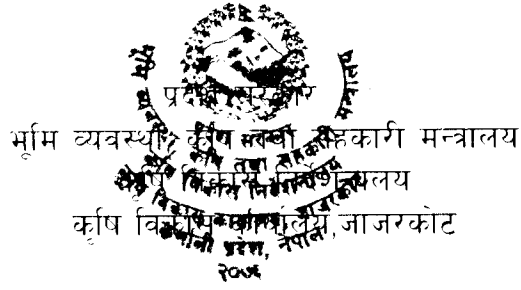 प्रदेश सरकार
भूमि व्यवस्था, कृषि तथा सहकारी मन्त्रालय
कृषि विकास निर्देशनालय
कृषि विकास कार्यालय, जाजरकोट
कर्णाली प्रदेश, नेपाल
२०७५